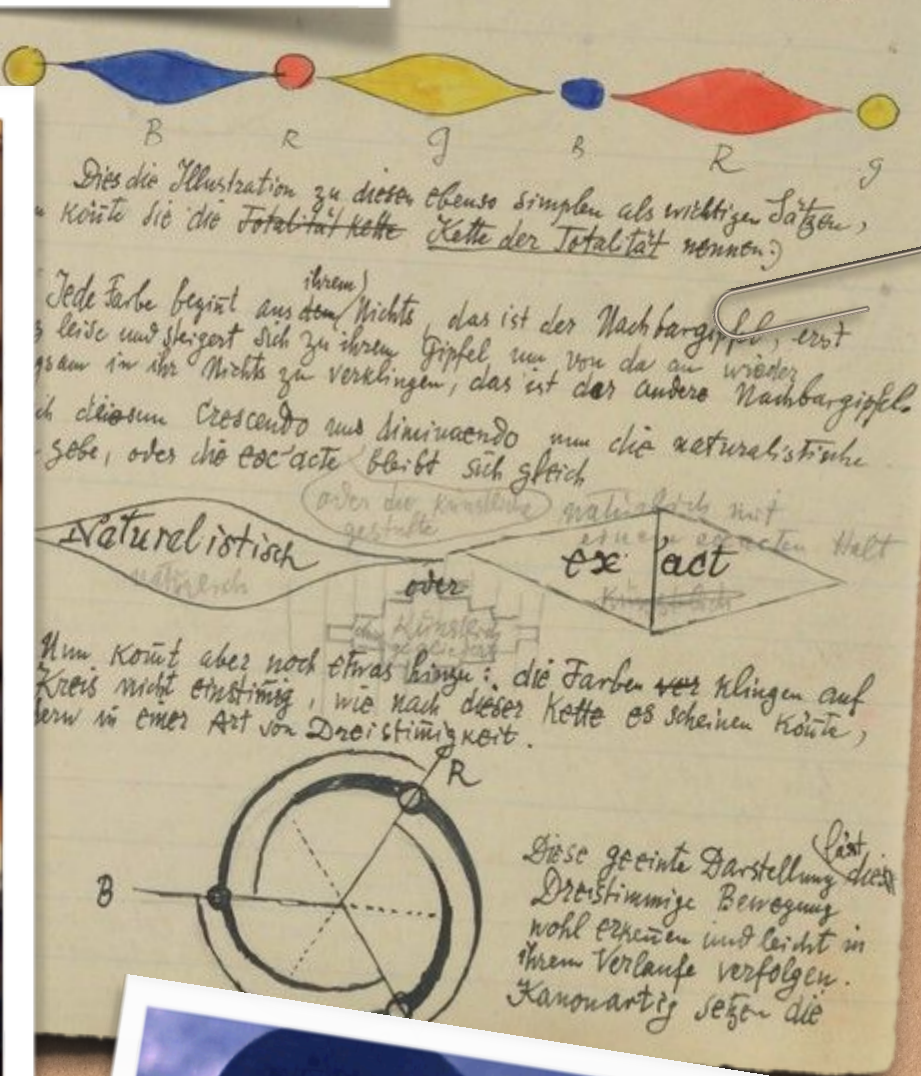 B R g B R g
Dies die Illustration zu diesen ebenso simplen als wichtigen Sätzen,
kön̄te sie die Totalität Kette Kette der Totalität nennen:)
ihrem)
Jede Farbe begin̄t aus dem Nichts, das ist der Nachbargipfel, erst
leise und steigert sich zu ihrem Gipfel um von da an wieder
in ihr Nichts zu verklingen, das ist der andere Nachbargipfel.
diesem Crescendo und diminuendo nun die naturalistische
gebe, oder die exacte bleibt sich gleich
oder die künstliche
gestalte
natürlich mit
einem exacten Halt
Naturalistisch
oder
ex act
künstlich
Nun kom̄t aber noch etwas hinzu: die Farben ver klingen auf
Kreis nicht einstim̄ig, wie nach dieser Kette es scheinen kön̄te,
dern in einer Art von Dreistim̄igkeit.
R
B
Diese geeinte Darstellung
lässt
diese
Dreistimmige Bewegung
wohl erken̄en und leicht in
ihrem Verlaufe verfolgen.
Kanonartig setzen die